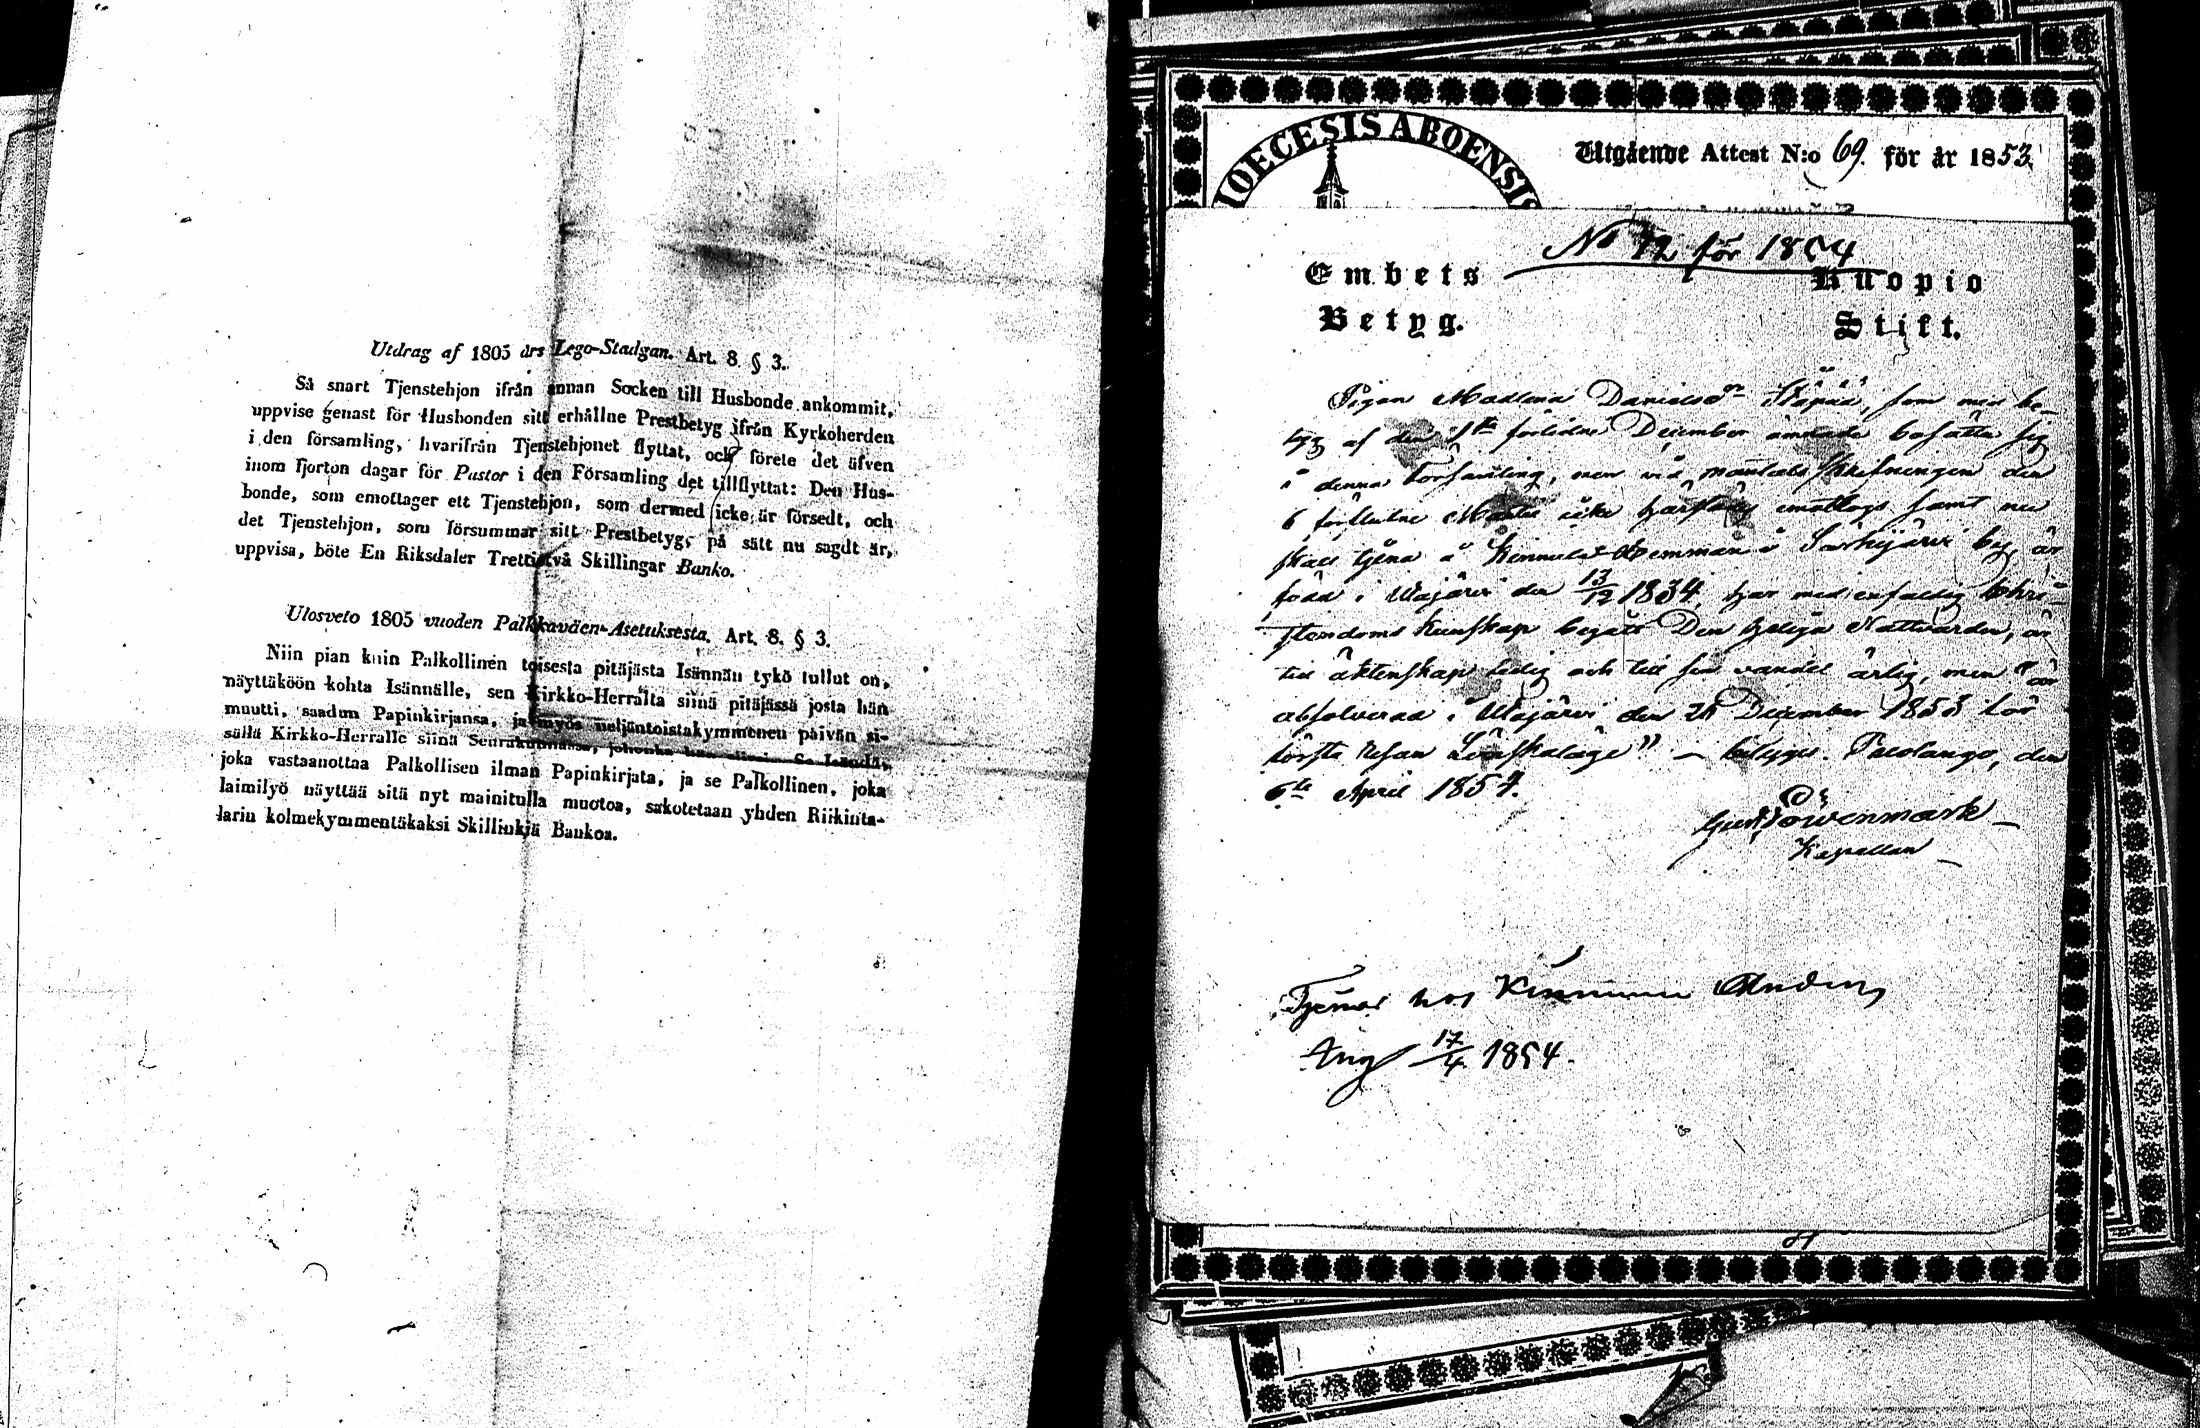 Utdrag af 1805 års Lego-Stadgan. Art. 8. § 3.
Så snart Tjenstehjon ifrån annan Socken till Husbonde ankommit,
uppvise genast för Husbonden sitt erhållne Prestbetyg ifrån Kyrkoherden
i den församling, hvarifrån Tjenstehjonet flyttat, och förete det äfven
inom fjorton dagar för Pastor i den Församling det tillflyttat: Den Hus-
bonde, som emottager ett Tjenstehjon, som dermed icke är försedt, och
det Tjenstehjon, som försummar sitt Prestbetyg, på sätt nu sagdt är,
uppvisa, böte En Riksdaler Trettiotvå Skillingar Banko.
Ulosveto 1805 vuoden Palkkaväen-Asetuksesta. Art. 8. § 3.
Niin pian kuin Palkollinen toisesta pitäjästä Isännän tykö tullut on,
näyttäköön kohta Isännälle, sen Kirkko-Herralta siinä pitäjässä josta hän
muutti, saadun Papinkirjansa, ja myös neljäntoistakymmenen päivän si-
sällä Kirkko-Herralle siinä Seurakunnassa,
joka vastaanottaa Palkollisen ilman Papinkirjata, ja se Palkollinen, joka
laimilyö näyttää sitä nyt mainitulla muotoa, sakotetaan yhden Riikinta-
larin kolmekymmentäkaksi Skillinkiä Bankoa.
IOECESIS ABOENSIS
Utgående Attest N:o 69. för år 1853.
No 12 för 1854
Embets Kuopio
Betyg. Stift.
Pigan Madlena Danielsdr, som med be-
tyg af den förlidne December ämnade bosätta sig
i denna Församling, men vid mantals skrifningen den
6 förflutne icke emottogs samt nu
skall tjena å Kinnula Hemman i by, är
född i den 13/12 1834, har med enfaldig Chri-
stendoms kunskap begått Den heliga Nattvarden, är
till äktenskap ledig och till sin vandel ärlig, men "är
absolverad i den December 1853 för
första resan Lönskaläge" – betygar. Pielango, den
6te April 1854.
Gust Löwenmark
Kapellan
Tjenar hos Kinnunen
Ang 17/4 1854.